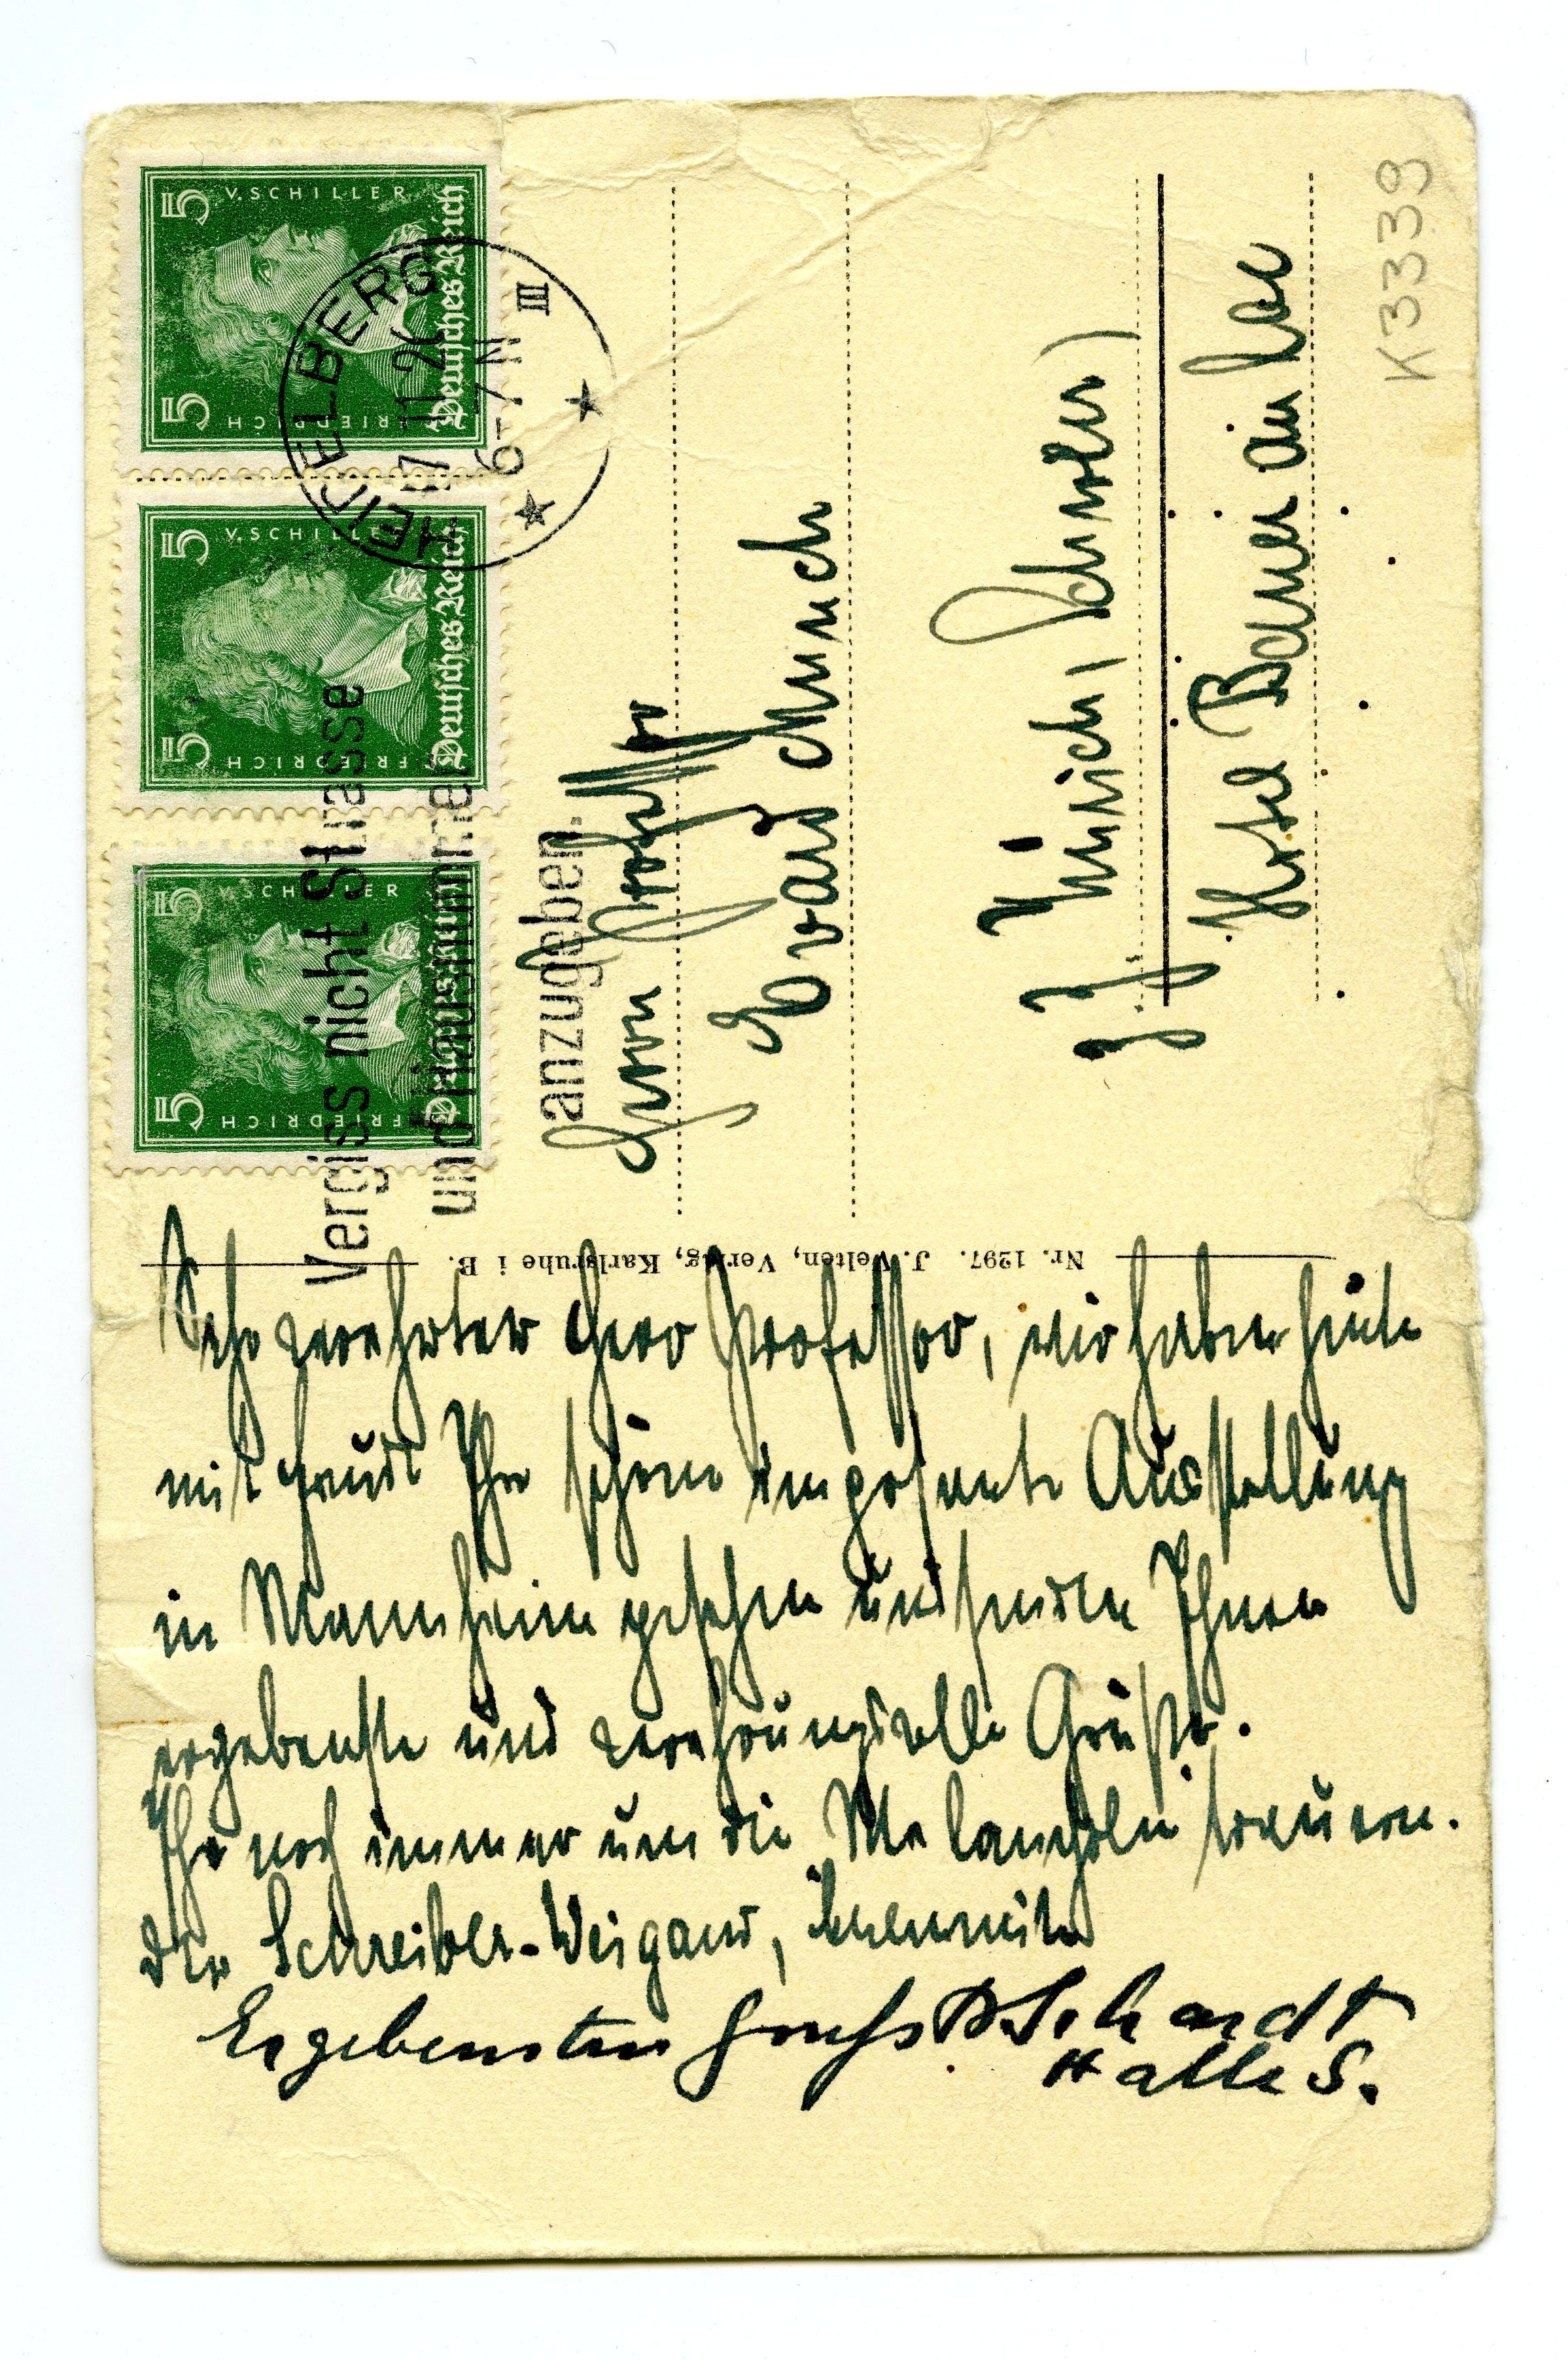 5 FRIEDRICH V. SCHILLER 5
Deutsches Reich
5 FRIEDRICH V. SCHILLER 5
Deutsches Reich
5 FRIEDRICH V. SCHILLER 5
Deutsches Reich
HEIDELBERG
6-7 N
III
Vergiss nicht Strasse
und
anzugeben.
Herrn Professor
Edvard Munch
z. Z. Zürich, (Schweiz)
Hotel Baur au lac
K3339
Nr. 1297. J. Welten, Verlag, Karlsruhe i B.
Sehr verehrter Herr Professor, wir haben heute
mit Freude Ihre schöne imposante Ausstellung
in Mannheim gesehen und senden Ihnen
ergebenste und verehrungsvolle Grüße.
Ihr noch immer um die Melancholie trauern.
der Schreiber-Weigand,
Ergebensten Gruß
Halle S.